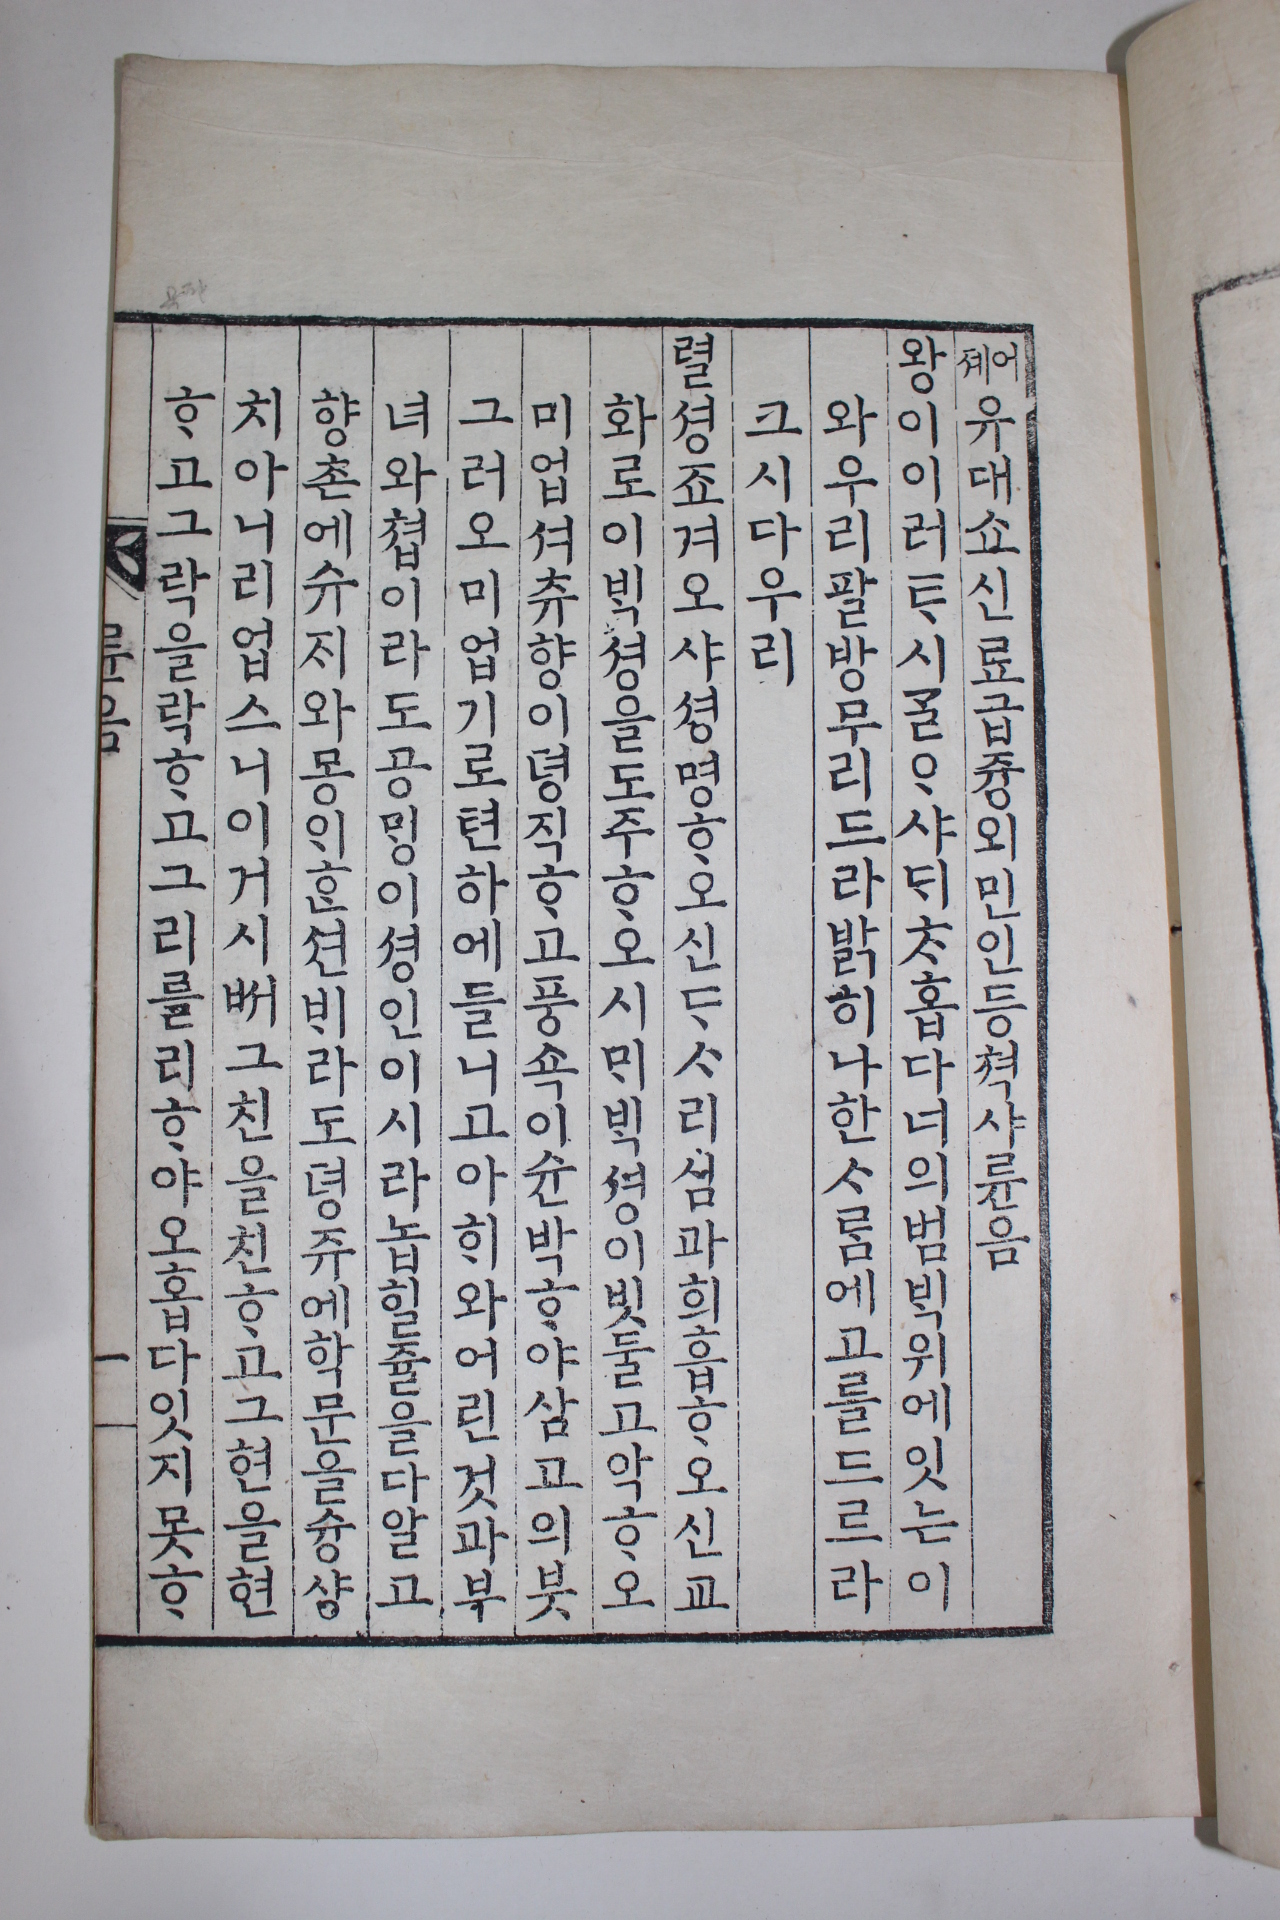 어졔유대쇼신료급즁외민인등쳑샤륜음
왕이이러ᄐᆞ시ᄀᆞᆯᄋᆞ샤ᄃᆡᄎᆞ홉다너의범ᄇᆡᆨ위에잇ᄂᆞᆫ이
와우리팔방무리드라밝히나한ᄉᆞᄅᆞᆷ에고를드르라
크시다우리
렬셩죠겨오샤셩명ᄒᆞ오신ᄃᆞᄉᆞ리셤과희흡ᄒᆞ오신교
화로이ᄇᆡᆨ셩을도주ᄒᆞ오시ᄆᆡᄇᆡᆨ셩이빗둘고악ᄒᆞ오
미업셔츄향이뎡직ᄒᆞ고풍쇽이슌박ᄒᆞ야삼고의붓
그러오미업기로텬하에들니고아ᄒᆡ와어린것과부
녀와쳡이라도공ᄆᆡᆼ이셩인이시라놉힐쥴을다알고
향촌에슈지와몽ᄋᆡᄒᆞᆫ션ᄇᆡ라도뎡쥬에학문을슝샹
치아니리업스니이거시ᄡᅥ그친을친ᄒᆞ고그현을현
ᄒᆞ고그락을락ᄒᆞ고그리를리ᄒᆞ야오홉다잇지못ᄒᆞ
륜음 一